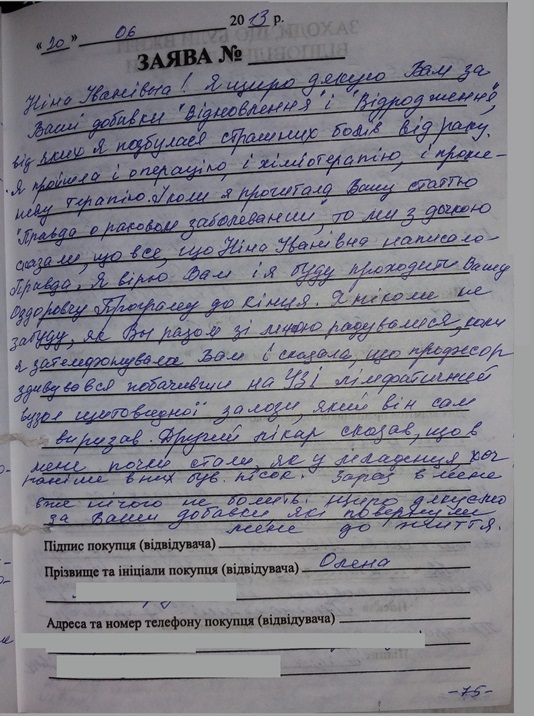 "20" 06 2013 р.
ЗАЯВА №
Ніна Іванівна! Я щиро дякую Вам за
Ваші добавки "Відновлення" і "Відродження",
від яких я позбулася страшних болів від раку.
Я пройшла і операцію, і хіміотерапію, і проме-
неву терапію. І коли я прочитала Вашу статтю
"Правда о раковом заболевании, то ми з дочкою
сказали, що все, що Ніна Іванівна написала-
Правда. Я вірю Вам і я буду проходити Вашу
Оздоровчу Програму до кінця. Я ніколи не
забуду, як Ви разом зі мною радувалися, коли
я зателефонувала Вам і сказала, що професор
здивувався побачивши на УЗІ лімфатичний
вузол щитовидної залози, який він сам
вирізав. Другий лікар сказав, що в
мене почки стали, як у младенця, хоч
раніше в них був пісок. Зараз в мене
вже нічого не болить. Щиро дякуємо
за Ваші добавки які повернули
мене до життя.
Підпис покупця (відвідувача)
Прізвище та ініціали покупця (відвідувача) Олена
Адреса та номер телефону покупця (відвідувача)
-75-